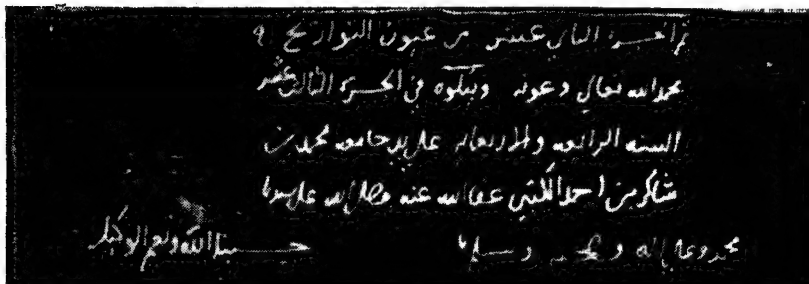 تم الجزء الثاني عشر من عيون التواريخ
بحمد الله تعالى وعونه ويتلوه في الجزء الثالث عشر
السنه الرابعه والاربعمايه على يد جامعه محمد بن
شاكر بن احمد الكتبي عفا الله عنه وصلى الله على سيدنا
محمد وعلى اله وصحبه وسلم
حسبنا الله ونعم الوكيل